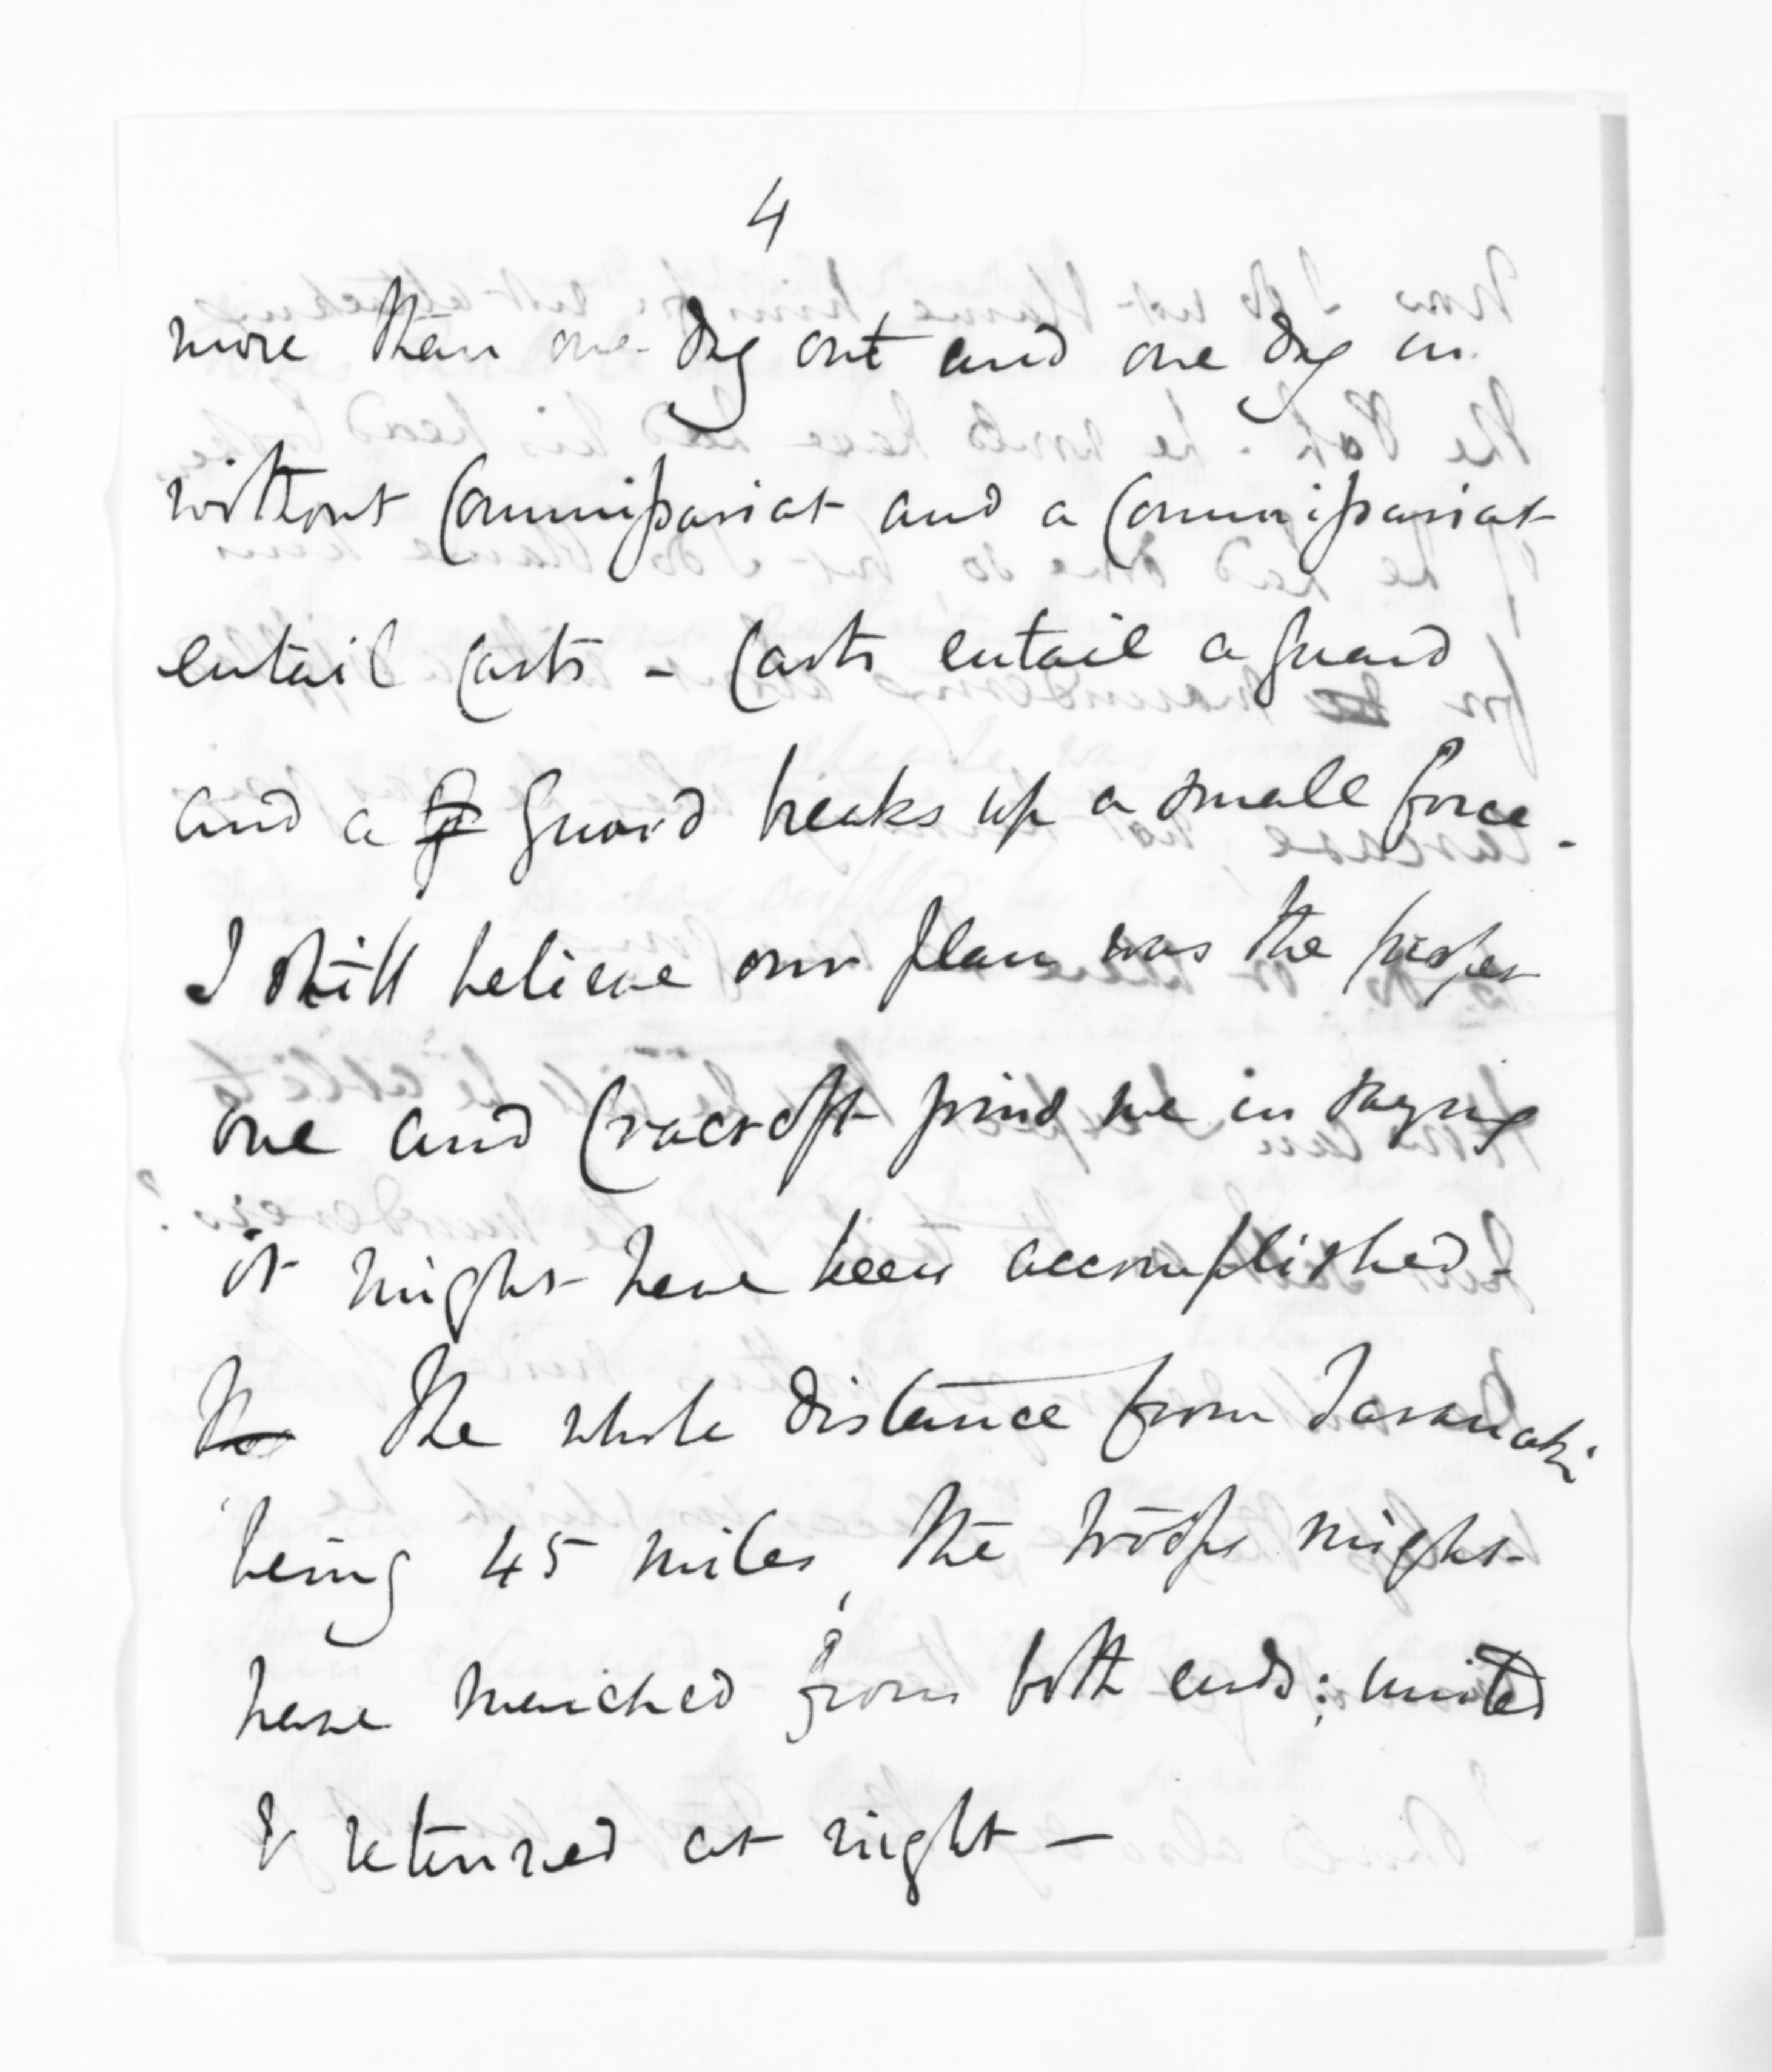 4
more than one day out and one day in
without Commissariat and a Commissariat
entail carts - Carts entail a guard
and a guard breaks up a small force.
I still believe our plan was the proper
one and Cracroft joins me in saying
it might have been accomplished -
The The whole distance from Taranaki
being 45 miles, the troops might
have marched from both ends; united
& returned at night -